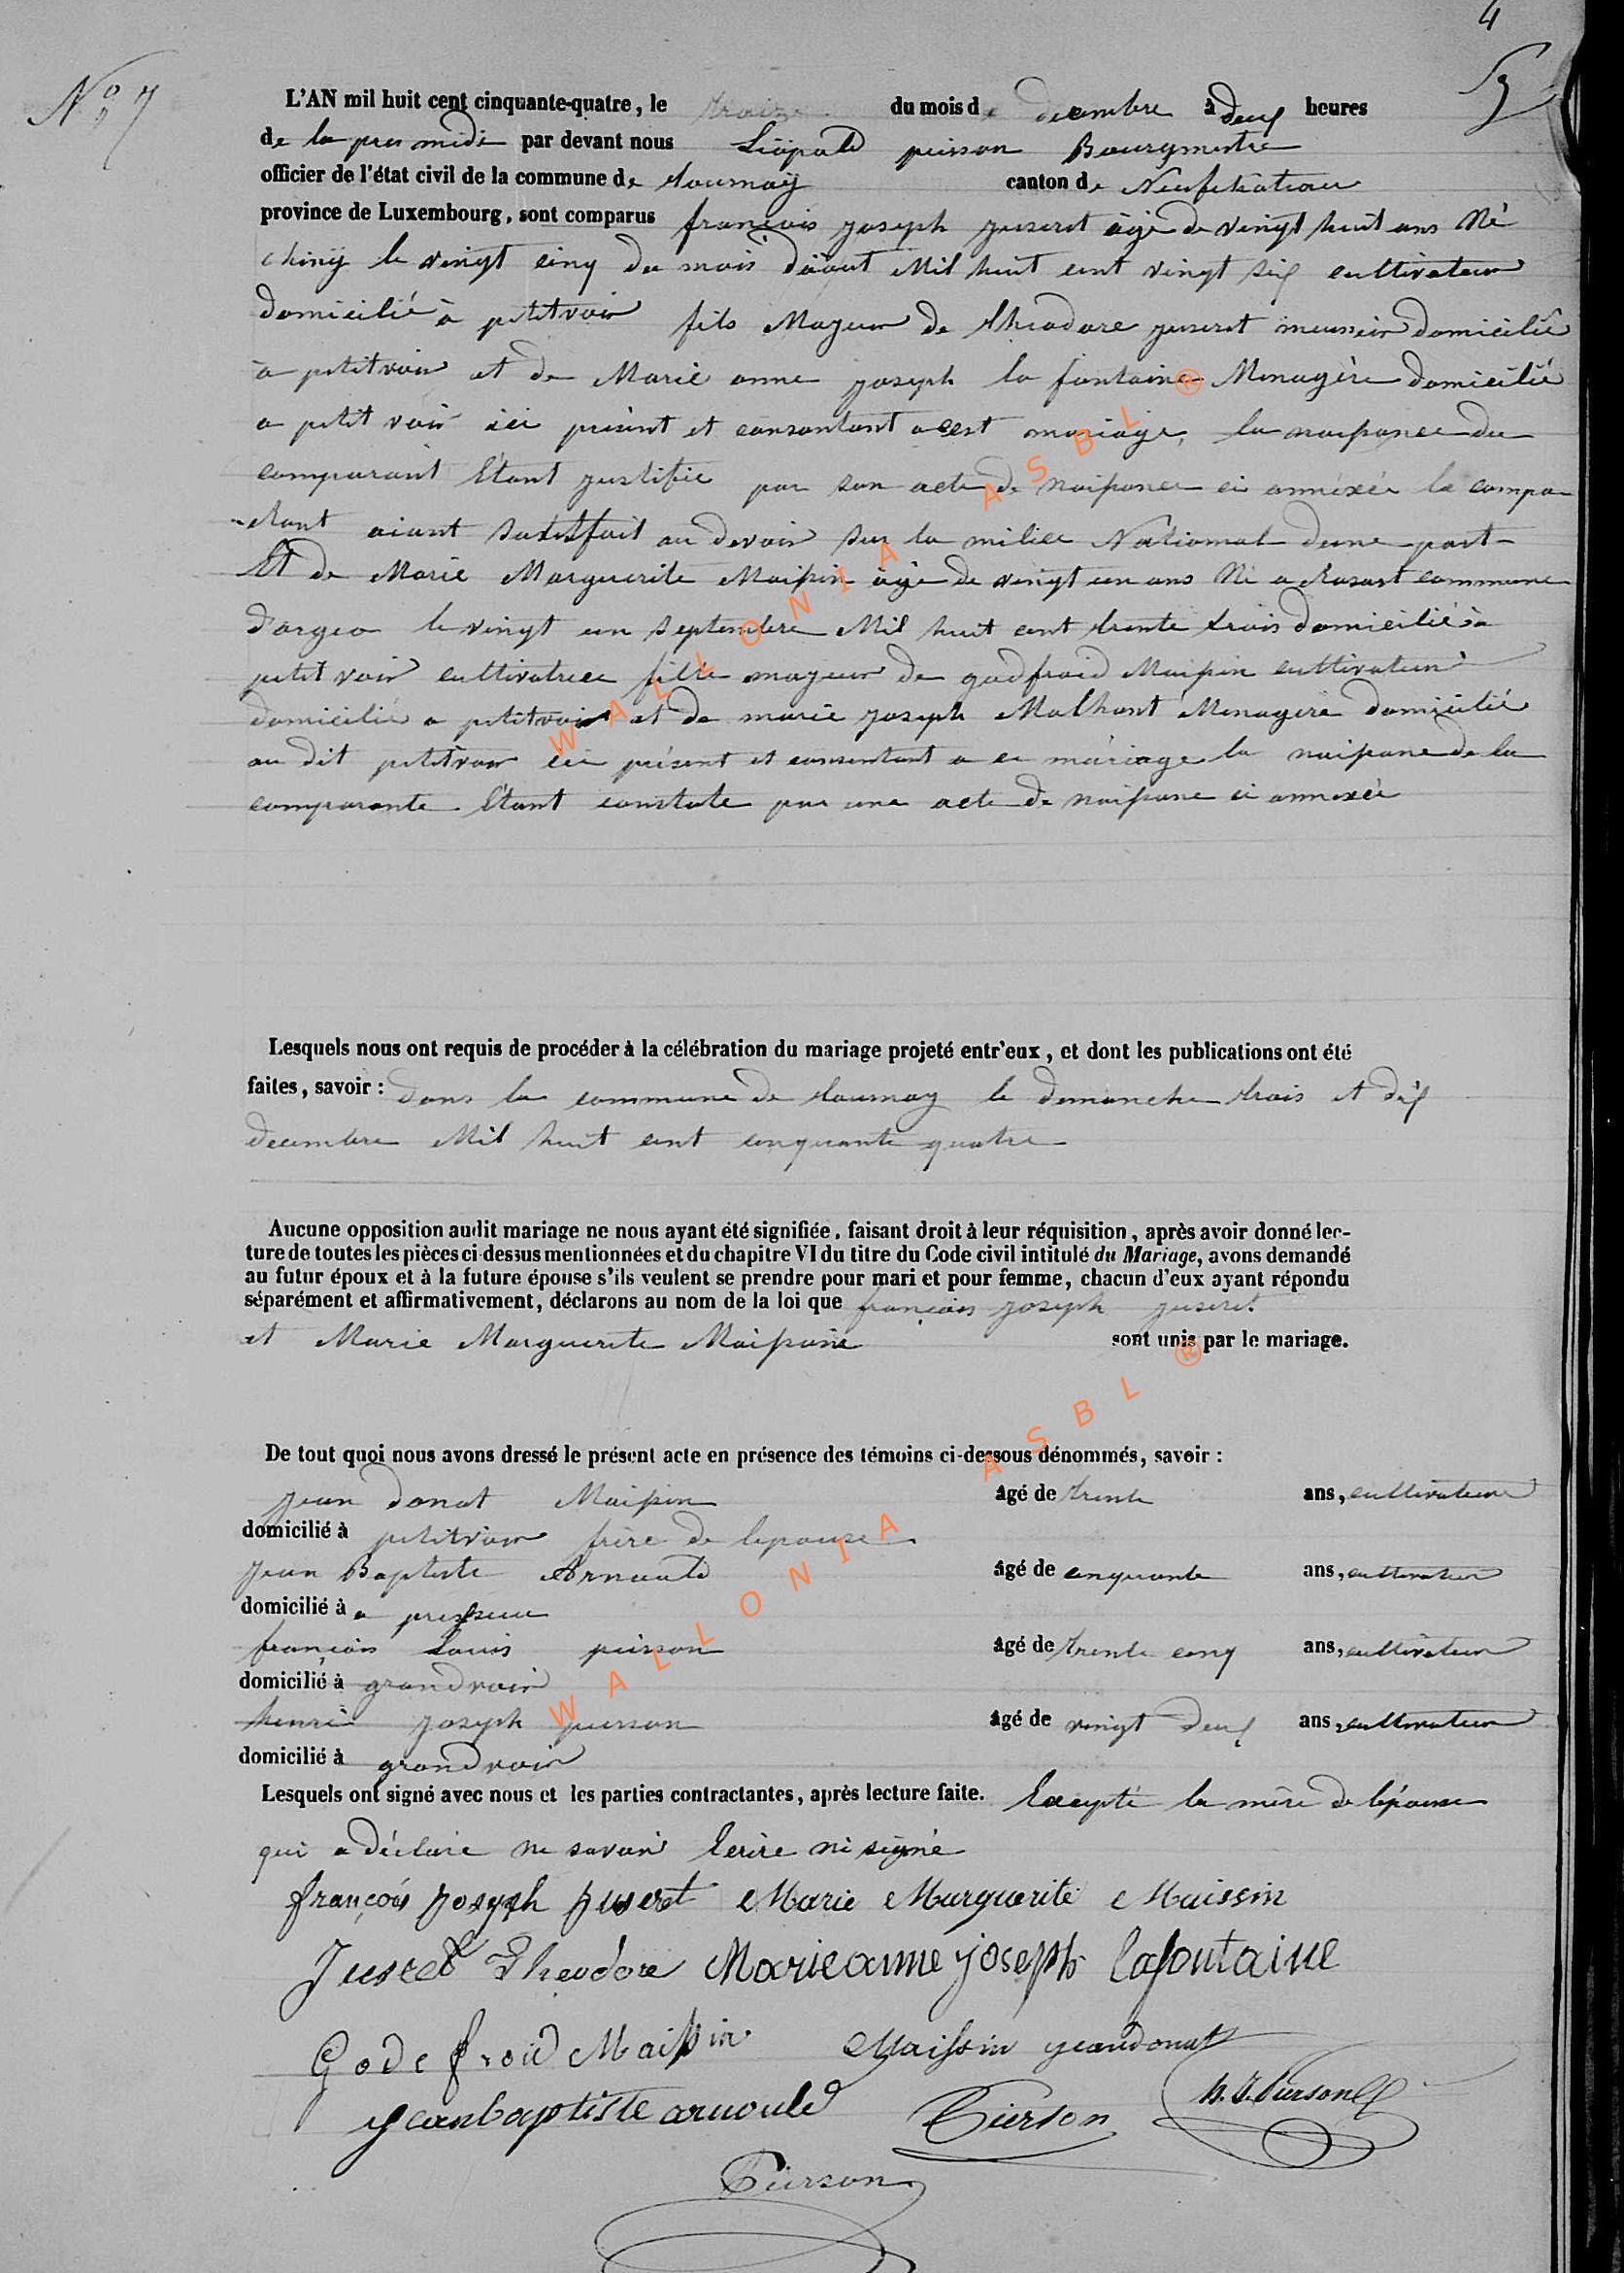 4
5
N° 7
L'AN mil huit cent cinquante-quatre, le treize du mois de decembre à deux heures
de la pres midi par devant nous Léopold pierson Bourgmestre
officier de l'état civil de la commune de tournay canton de Neufchateau
province de Luxembourg, sont comparus françois joseph juseret âgé de vingt huit ans Né
chiny le vingt cinq du mois d'aout Mil huit cent vingt six cultivateur
domicilié à petitvoir fils Majeur de théodore juseret meunier domicilié
a petitvoir et de Marie anne joseph la fontaine Menagère domicilié
a petit voir ici présent et consantant a cest mariage, la naissance du
comparant Etant justifie par son acte de naissance ci annéxée le compa
rant aiant satisfait au devoir sur la milice National dune part
Et de Marie Marguerite Maissin âgé de vingt un ans Né a rosart commune
d'orgeo le vingt un septembre Mil huit cent trente trois domicilié à
petit voir cultivatrice fille majeur de godfroid Maissin cultivateur
domicilié a petitvoir et de marie joseph Malhant Menagère domicilié
au dit petitvoir ici présent et consentant a ce mariage la naissance de la
comparante Etant constate par une acte de naissance ci annexée
Lesquels nous ont requis de procéder à la célébration du mariage projeté entr'eux, et dont les publications ont été
faites, savoir : dans la commune de tournay le dimanche trois et dix
decembre Mil huit cent cinquante quatre
Aucune opposition audit mariage ne nous ayant été signifiée, faisant droit à leur réquisition, après avoir donné lec-
ture de toutes les pièces ci-dessus mentionnées et du chapitre VI du titre du Code civil intitulé du Mariage, avons demandé
au futur époux et à la future épouse s'ils veulent se prendre pour mari et pour femme, chacun d'eux ayant répondu
séparément et affirmativement, déclarons au nom de la loi que françois joseph juseret
et Marie Marguerite Maissin sont unis par le mariage.
De tout quoi nous avons dressé le présent acte en présence des témoins ci-dessous dénommés, savoir :
jean donat Maissin âgé de trente ans, cultivateur
domicilié à petitvoir frère de lepouse
jean Baptiste Arnould âgé de cinquante ans, cultivateur
domicilié à a presseux
françois Louis pierson âgé de trente cinq ans, cultivateur
domicilié à grandvoir
henri joseph pierson âgé de vingt deux ans, cultivateur
domicilié à grandvoir
Lesquels ont signé avec nous et les parties contractantes, après lecture faite. Excepté la mère de lépouse
qui a déclaré ne savoir Ecrire ni signé
françois Joseph Juseret Marie Marguerite Maissin
Juseret Theodore Marie anne joseph lafontaine
Godefroid Maissin Maissin jeandonat
jeanbaptiste arnould Pierson h.J.Pierson
Pierson
WALLONIA ASBL ®
WALLONIA ASBL ®